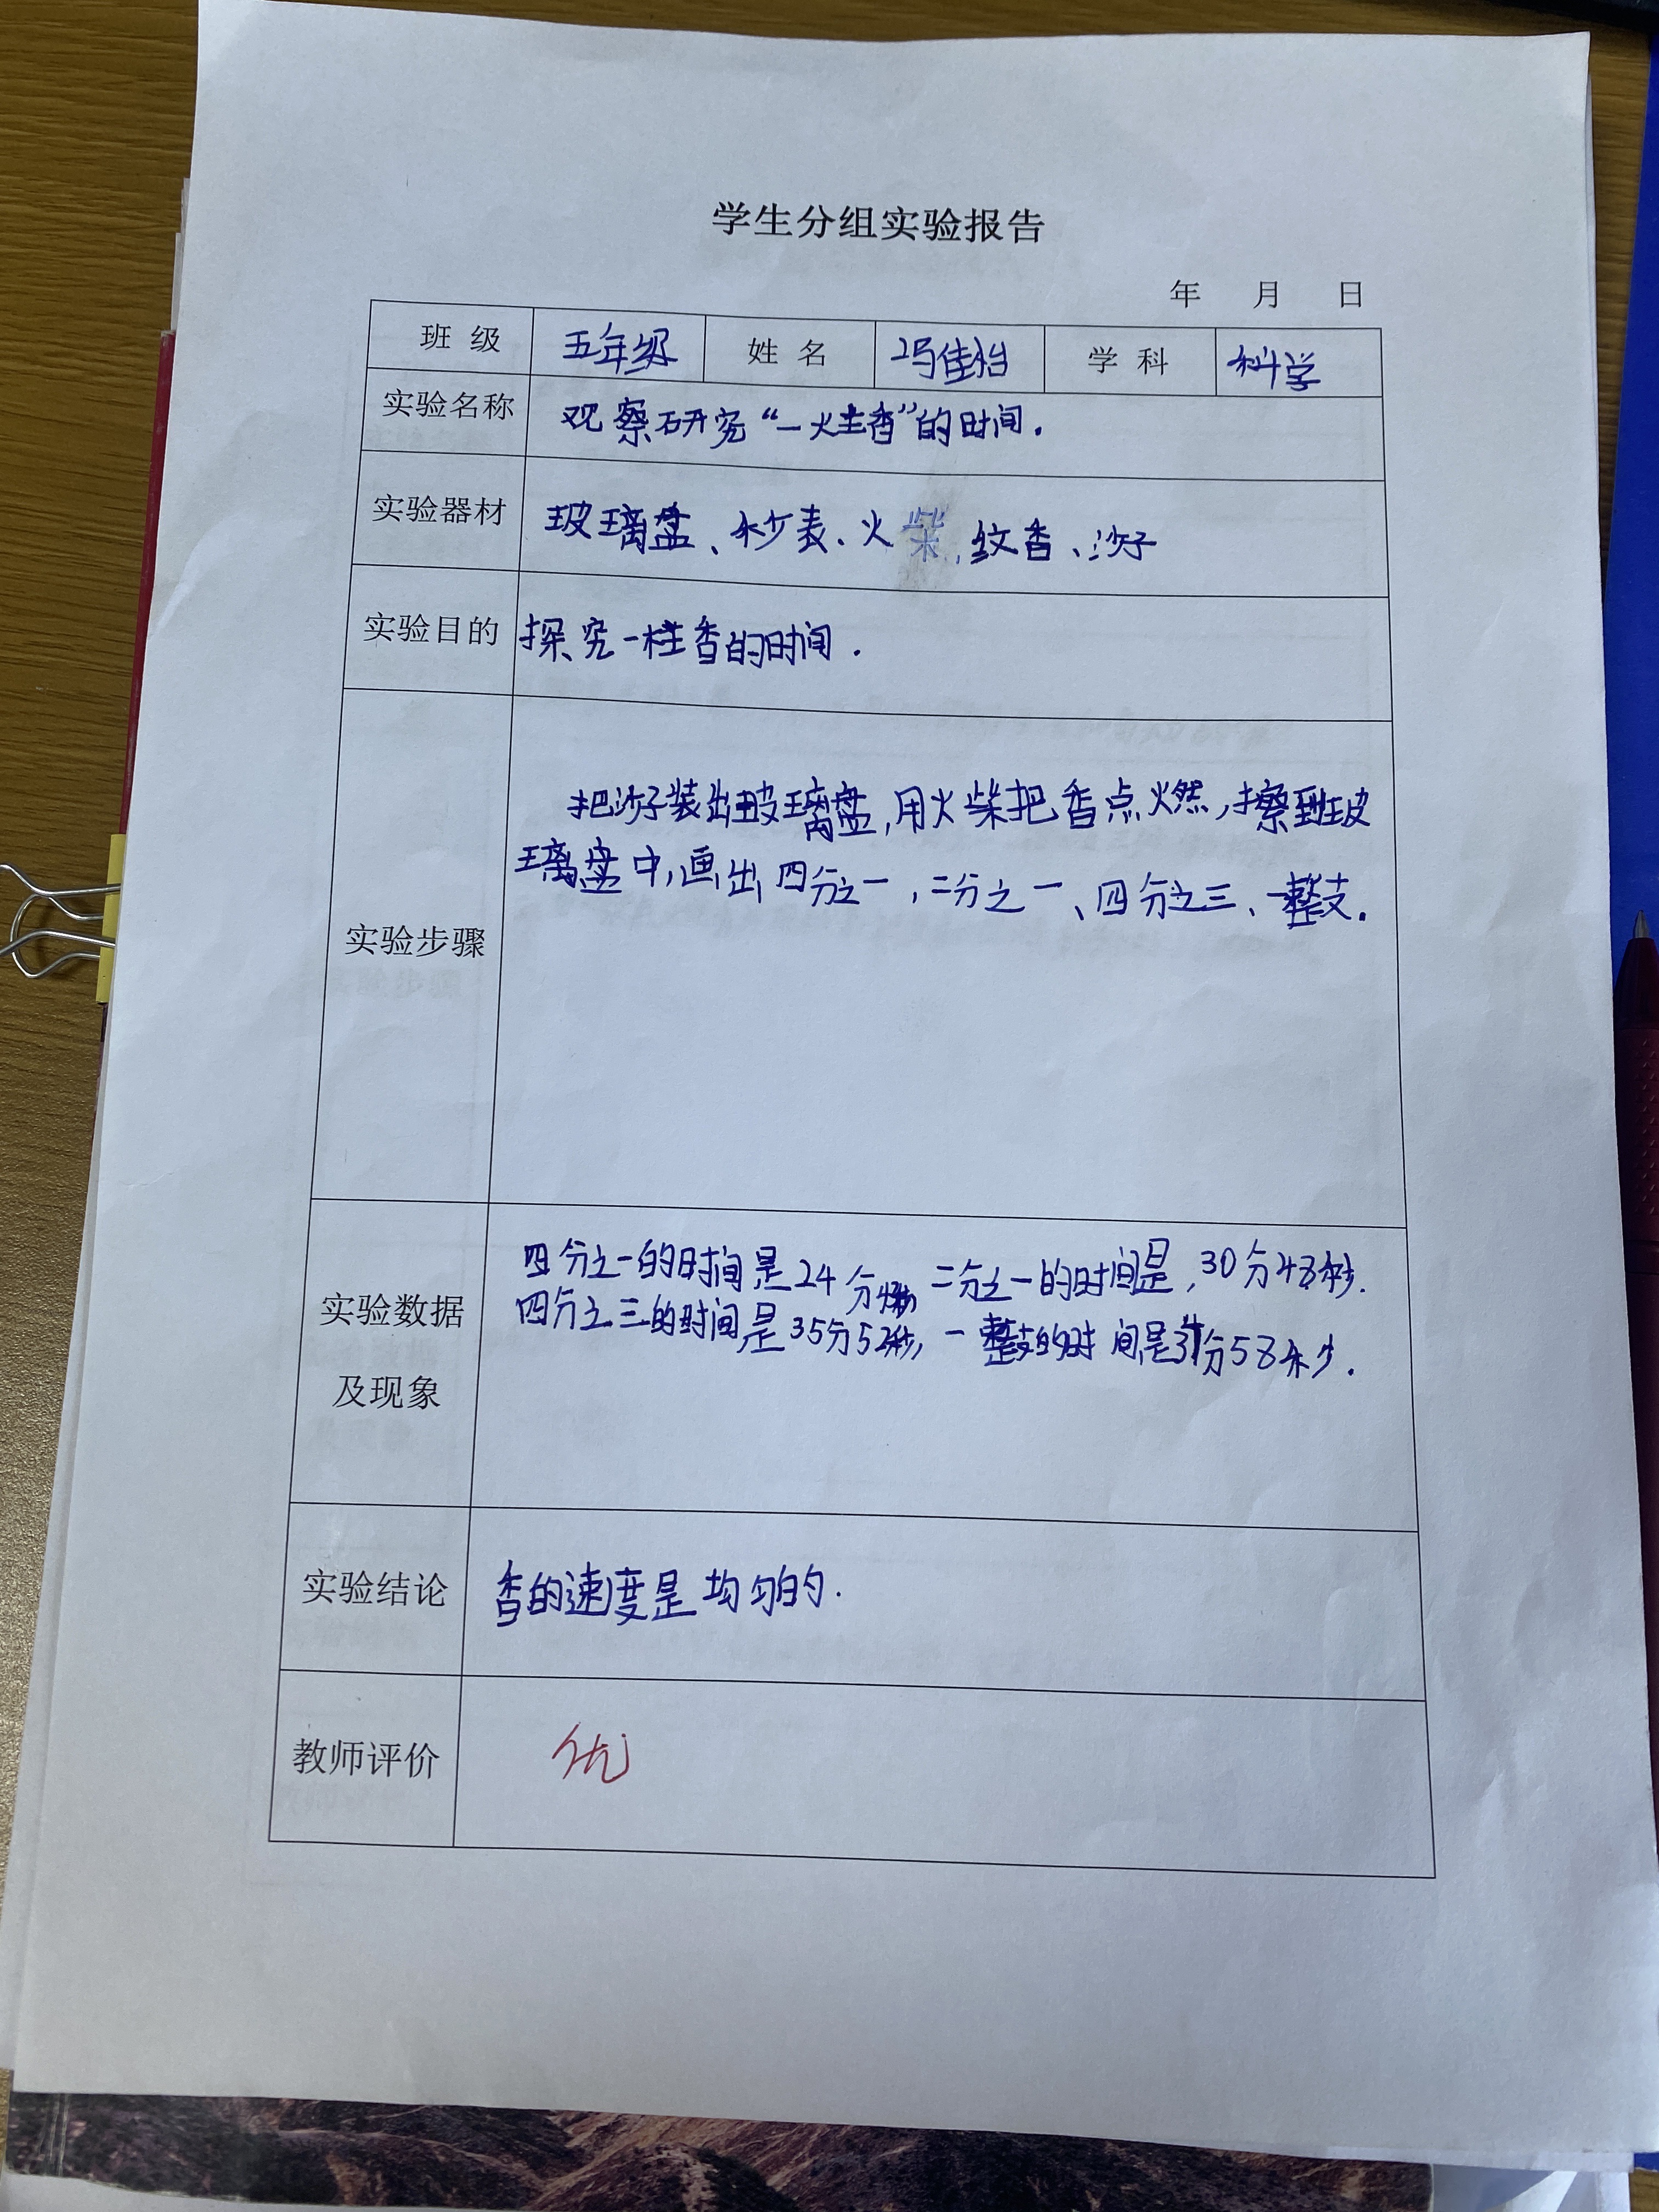 学生分组实验报告
年 月 日
班 级 五年级 姓 名 冯佳怡 学 科 科学
实验名称 观察研究“一炷香”的时间.
实验器材 玻璃盘、秒表、火柴、纹香、沙子
实验目的 探究一柱香的时间.
实验步骤
把沙子装出玻璃盘,用火柴把香点燃,擦到玻
璃盘中,画出四分之一,二分之一、四分之三、一整支.
实验数据
及现象
四分之一的时间是24分 二分之一的时间是,30分48秒.
四分之三的时间是35分52秒,一整支的时间是 分58秒.
实验结论 香的速度是均匀的.
教师评价 优